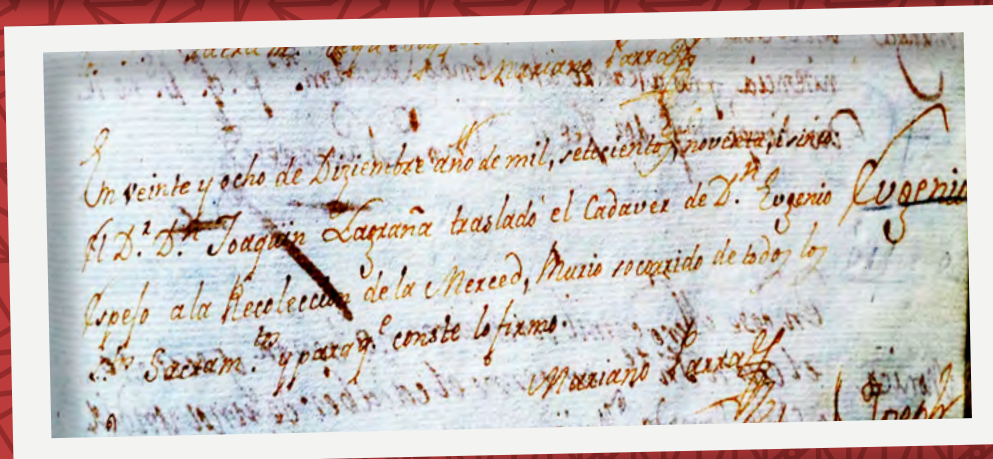 Mariano Larra
En veinte y ocho de Diziembre año de mil, setecientos, noventa, i sinco:
El D.r D.n Joaquin Lagraña traslado el Cadaver de D.n Eugenio
Espejo a la Recoleccion de la Merced, Murio socorrido de todos los
Sacram.tos y para q.e conste lo firmo.
Mariano Larra
Eugenio
Joseph